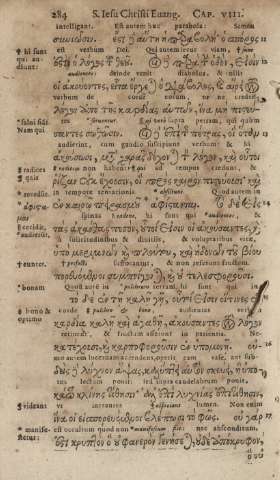 284 S. Iesu Christi Euang. CAP. VIII.
intelligant. Est autem hæc parabola: Semen
est verbum Dei. Qui autem secus viam, hi sunt
qui audiunt:
audientes: deinde venit diabolus, & tollit
οἱ ἀκούοντες, εἶτα ἔρχεται ὁ διάβολος, καὶ αἴρει τὸν
verbum de corde eorum, ne
λόγον ἀπὸ τῆς καρδίας αὐτῶν, ἵνα μὴ πιστεύ-
salui fidt
Nam qui
supra petram, qui quùm
σαντες σωθῶσιν. οἱ δὲ ἐπὶ τῆς πέτρας, οἳ ὅταν
audierint, cum gaudio suscipiunt verbum & hi
ἀκούσωσι, μετὰ χαρᾶς δέχονται τὸν λόγον, καὶ οὗτοι
radices
non habent: qui ad tempus credunt, &
ῥίζαν οὐκ ἔχουσιν, οἳ πρὸς καιρὸν πιστεύουσι καὶ
tempore tentationis
ἐν καιρῷ πειρασμοῦ ἀφίστανται. τὸ δὲ εἰς
spinas cecidit, hi sunt qui audierunt, &
τὰς ἀκάνθας πεσὸν, οὗτοί εἰσιν οἱ ἀκούσαντες, καὶ
sollicitudinibus & diuitiis, & voluptatibus vitæ,
ὑπὸ μεριμνῶν καὶ πλούτου, καὶ ἡδονῶν τοῦ βίου
euntes,
suffocantur, & non referunt fructum.
πορευόμενοι συμπνίγονται, καὶ οὐ τελεσφοροῦσι.
bonam
Quod autem in terram, hi sunt qui in
τὸ δὲ ἐν τῇ καλῇ γῇ, οὗτοί εἰσιν οἵτινες ἐν
bono &
optimo
corde & bono, audientes verbum
καρδίᾳ καλῇ καὶ ἀγαθῇ, ἀκούσαντες τὸν λόγον
retinent, & fructum afferunt in patientia. Ne-
κατέχουσι, καὶ καρποφοροῦσιν ἐν ὑπομονῇ. οὐ-
mo autem lucernam accendens, operit eam vase, aut sub-
δεὶς δὲ λύχνον ἅψας, καλύπτει αὐτὸν σκεύει, ἢ ὑπο-
tus lectum ponit: sed supra candelabrum ponit,
κάτω κλίνης τίθησιν· ἀλλ' ἐπὶ λυχνίας ἐπιτίθησιν,
videant
vt intrantes lumen. Non enim
ἵνα οἱ εἰσπορευόμενοι βλέπωσι τὸ φῶς. οὐ γάρ 17
manife-
stetur:
est occultum quod non manifestum fiet: nec absconditum,
ἐστι κρυπτὸν ὃ οὐ φανερὸν γενήσεται, οὐδὲ ἀπόκρυφον,